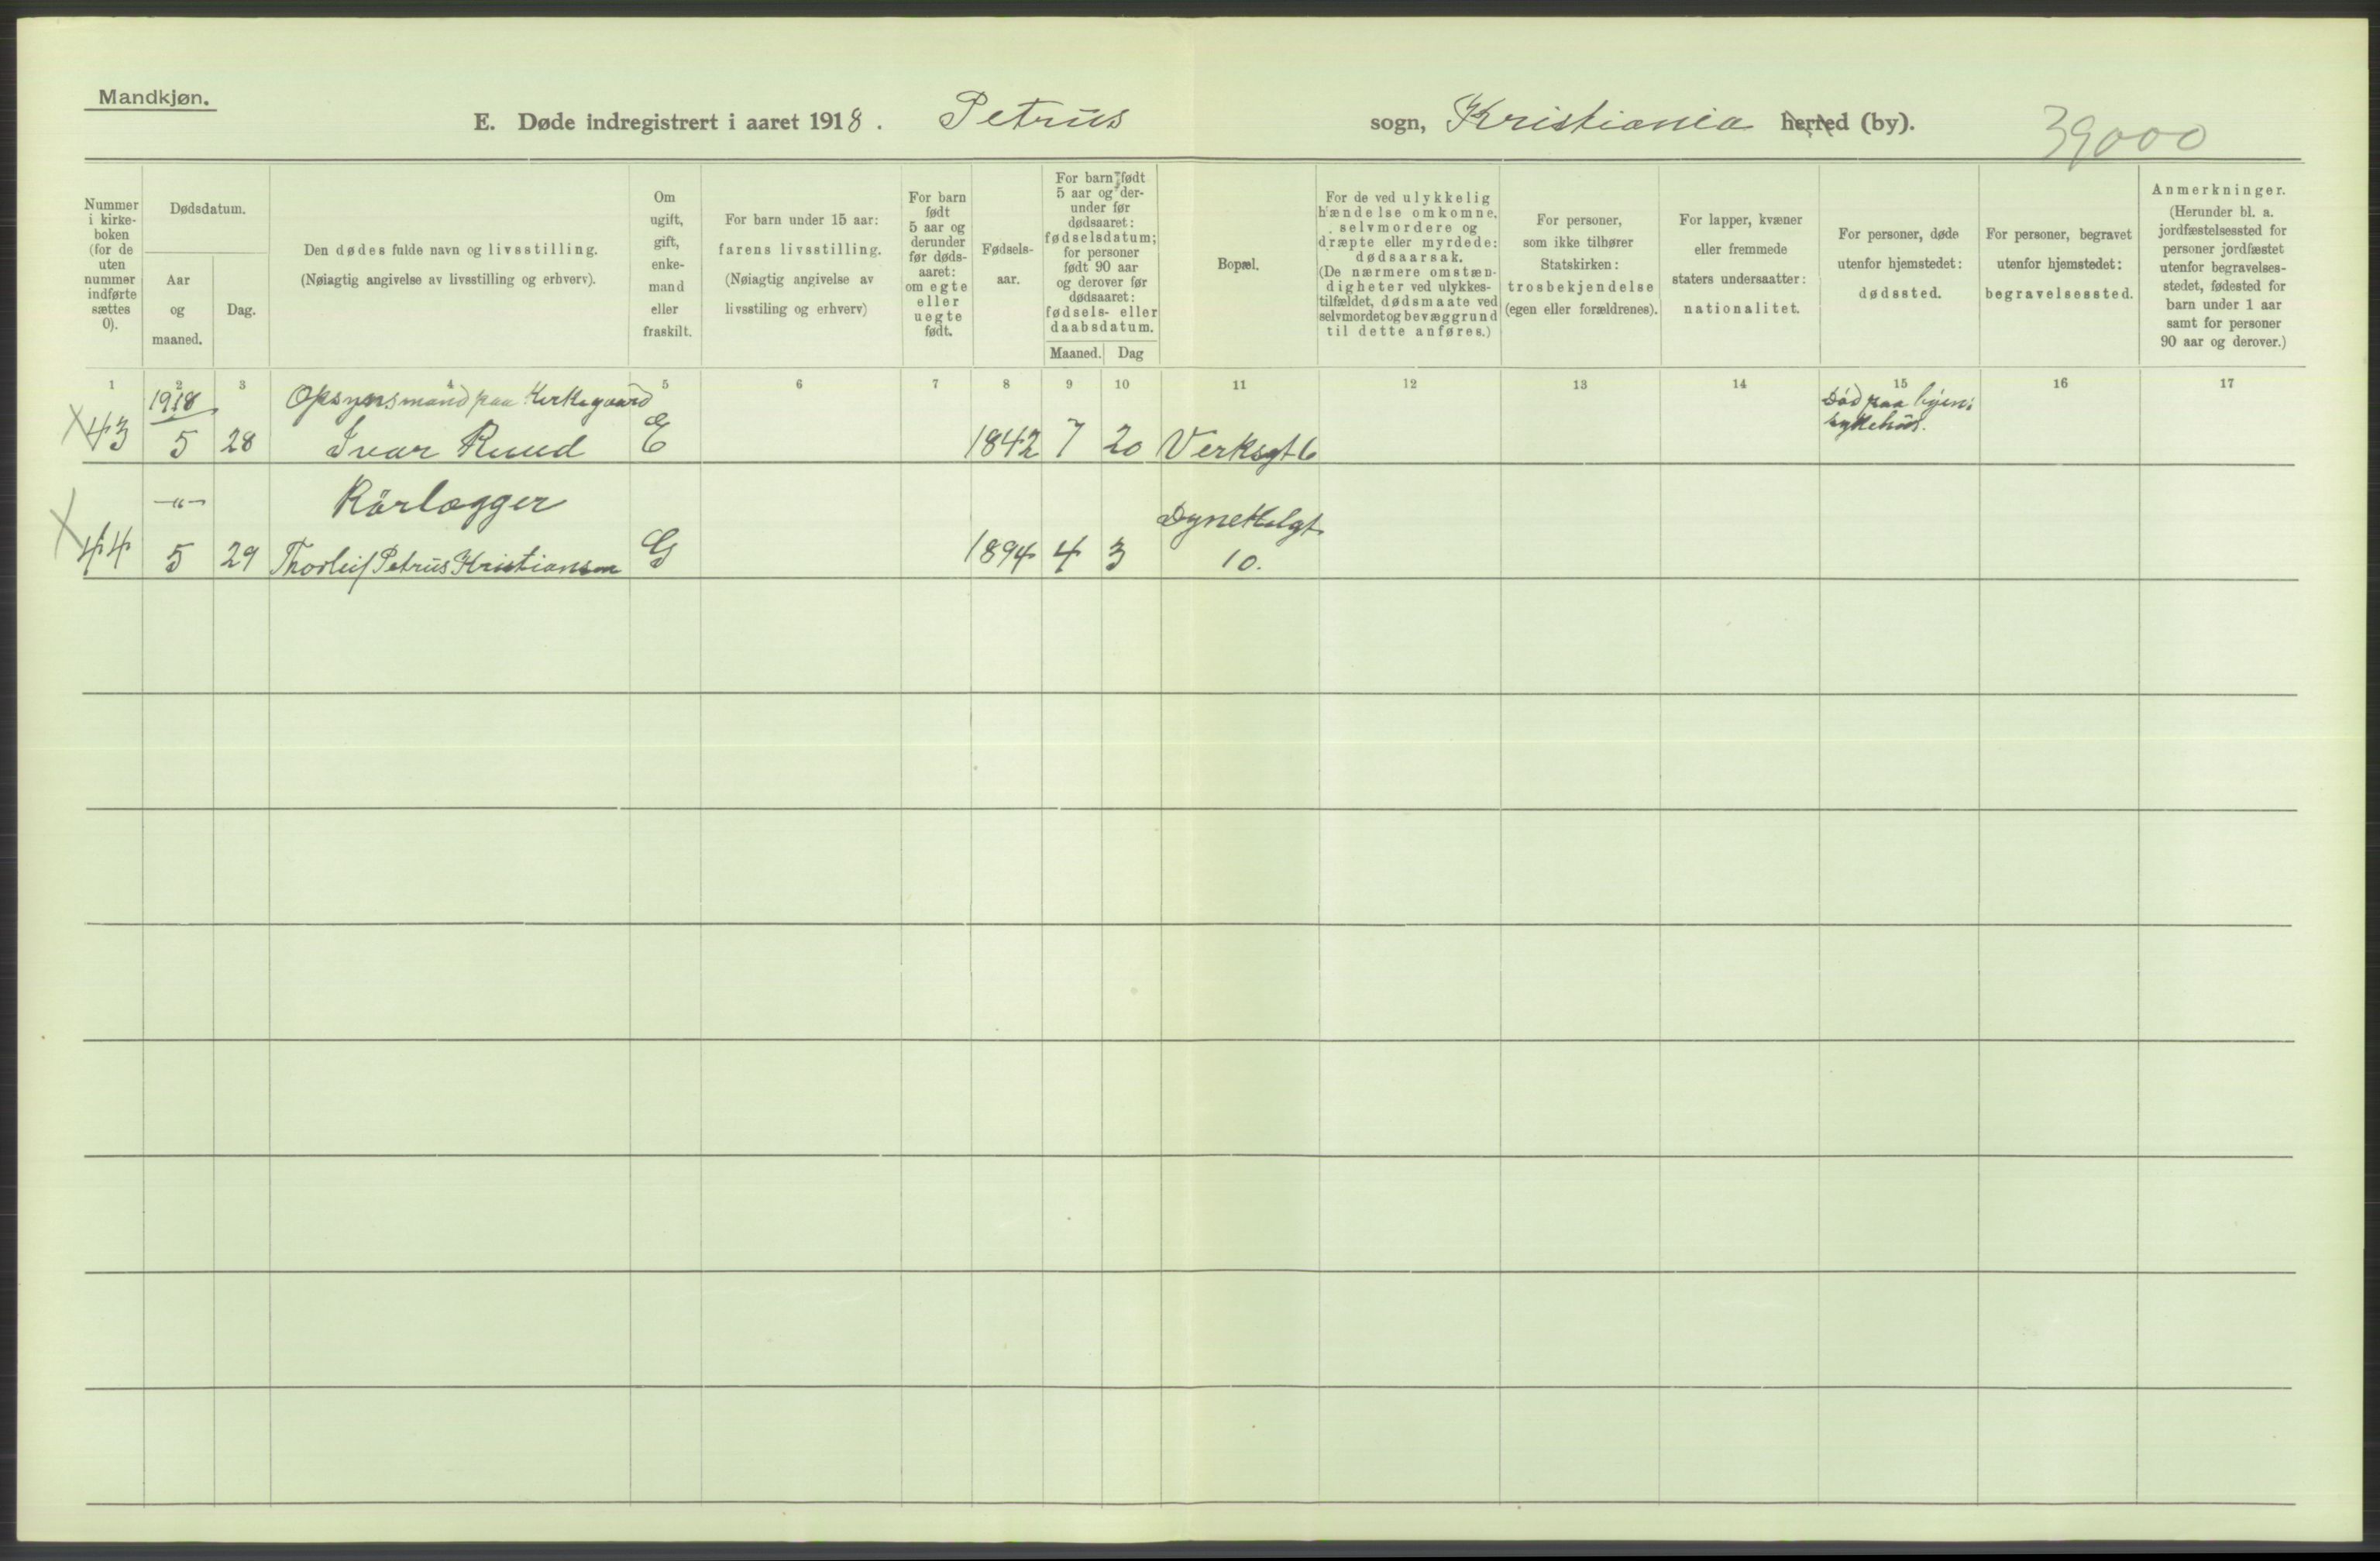 Mandkjøn.
E. Døde indregistrert i aaret 1918. Petrus sogn, Kristiania herred (by).
39000
Nummer
i kirke-
boken
(for de
uten
nummer
indførte
sættes
0).
Dødsdatum.
Aar
og
maaned.
Dag.
Den dødes fulde navn og livsstilling.
(Nøiagtig angivelse av livsstilling og erhverv).
Om
ugift,
gift,
enke-
mand
eller
fraskilt.
For barn under 15 aar:
farens livsstilling.
(Nøiagtig angivelse av
livsstiling og erhverv)
For barn
født
5 aar og
derunder
før døds-
aaret:
om egte
eller
uegte
født.
Fødsels-
aar.
For barn født
5 aar og der-
under før
dødsaaret:
fødselsdatum;
for personer
født 90 aar
og derover før
dødsaaret:
fødsels- eller
daabsdatum.
Maaned.
Dag
Bopæl.
For de ved ulykkelig
hændelse omkomne,
selvmordere og
dræpte eller myrdede:
dødsaarsak.
(De nærmere omstæn-
digheter ved ulykkes-
tilfældet, dødsmaate ved
selvmordet og bevæggrund
til dette anføres.)
For personer,
som ikke tilhører
Statskirken:
trosbekjendelse
(egen eller forældrenes).
For lapper, kvæner
eller fremmede
staters undersaatter:
nationalitet.
For personer, døde
utenfor hjemstedet:
dødssted.
For personer, begravet
utenfor hjemstedet:
begravelsessted.
Anmerkninger.
(Herunder bl. a.
jordfæstelsessted for
personer jordfæstet
utenfor begravelses-
stedet, fødested for
barn under 1 aar
samt for personer
90 aar og derover.)
1 2 3 4 5 6 7 8 9 10 11 12 13 14 15 16 17
1918 Opsynsmand paa Kirkegaard Död paa byens
sykehus.
43 5 28 Ivar Ruud E 1842 7 20 Verksgt 6
-"- Rörlægger Dynekilgt
44 5 29 Thorleif Petrus Kristiansen G 1894 4 3 10.